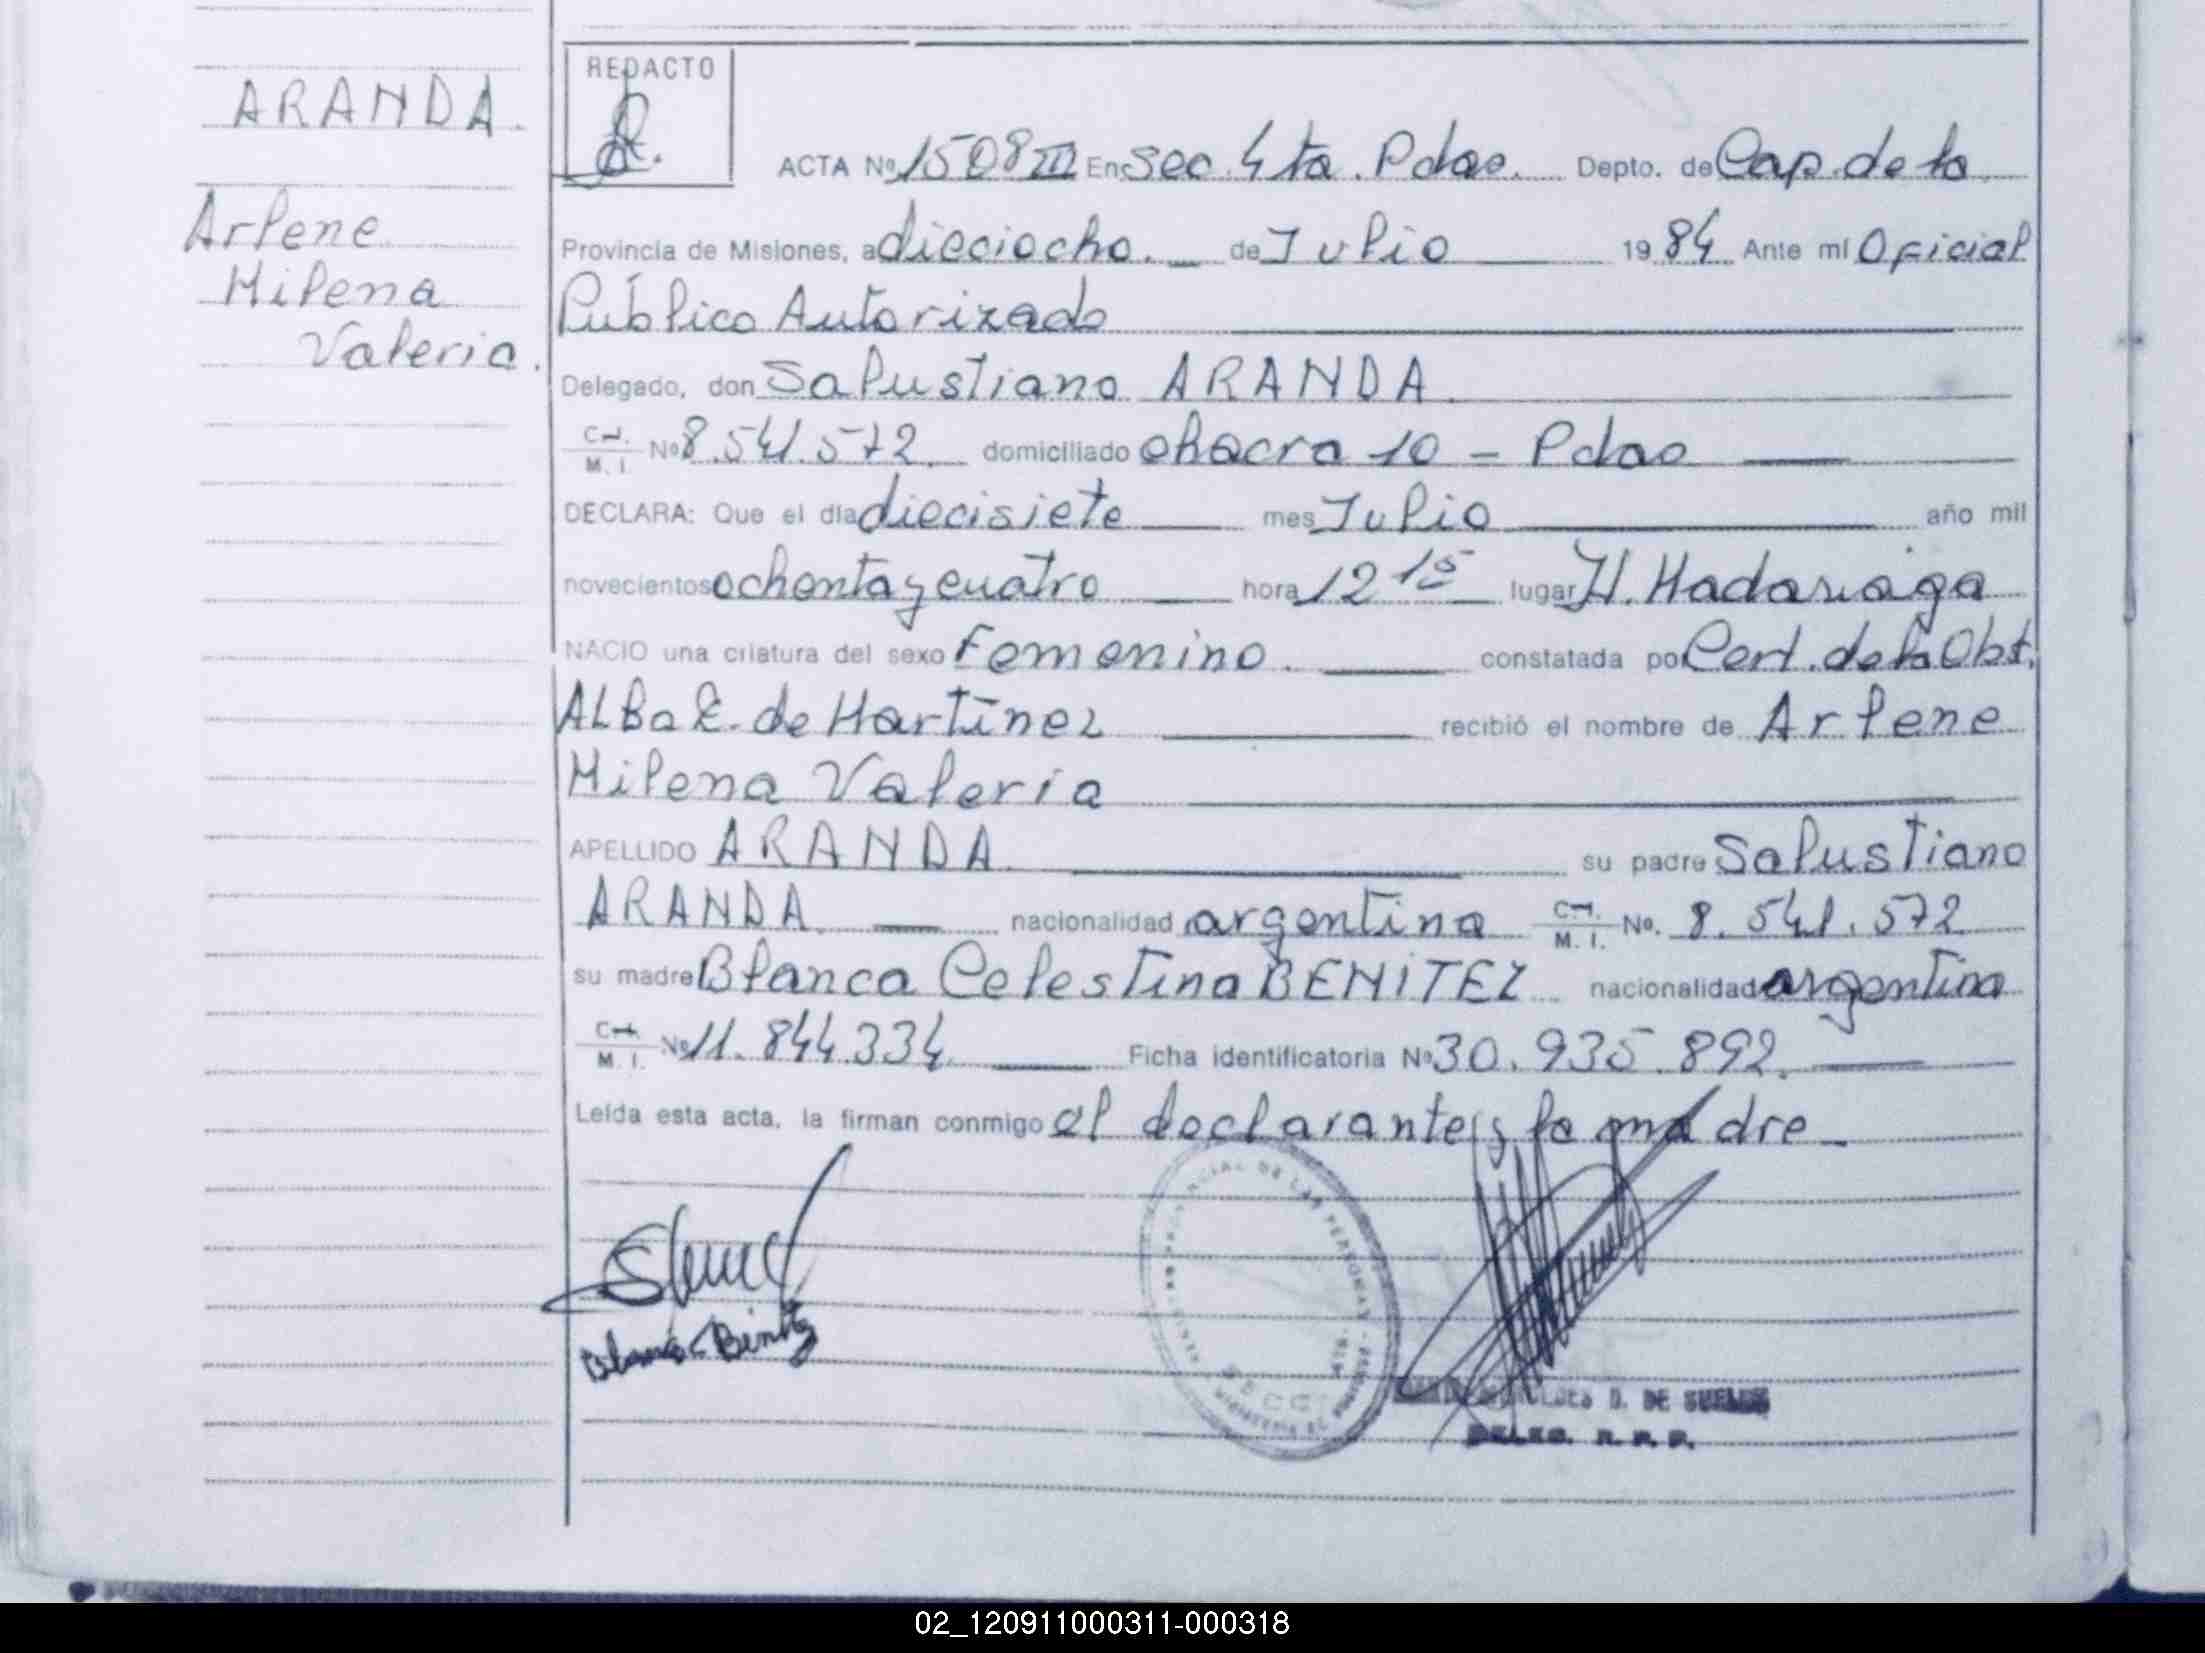 ARANDA.
Arlene
Milena
Valeria.
REDACTO
ACTA Nº 1508 III En Sec. 4ta. Pdas. Depto. de Cap. de la
Provincia de Misiones, a dieciocho. de Julio 1984 Ante mí Oficial
Público Autorizado
Delegado, don Salustiano ARANDA.
C.I. M. I. Nº 8.541.572. domiciliado chacra 10 - Pdas
DECLARA: Que el día diecisiete mes Julio año mil
novecientos ochenta y cuatro hora 12 15 lugar H. Madariaga
NACIO una criatura del sexo Femenino. constatada por Cert. de la Obst.
ALBa E. de Martínez recibió el nombre de Arlene
Milena Valeria
APELLIDO ARANDA su padre Salustiano
ARANDA. nacionalidad argentina C.I. M. I. Nº. 8.541.572
su madre Blanca Celestina BENITEZ nacionalidad argentina
C.I. M. I. Nº 11.844.334 Ficha identificatoria Nº 30.935.892.
Leída esta acta, la firman conmigo el declarante y la madre
Blanca C Benitez
DE LAS PERSONAS
D. DE SUELDO
DELEG. R. P. P.
02_120911000311-000318